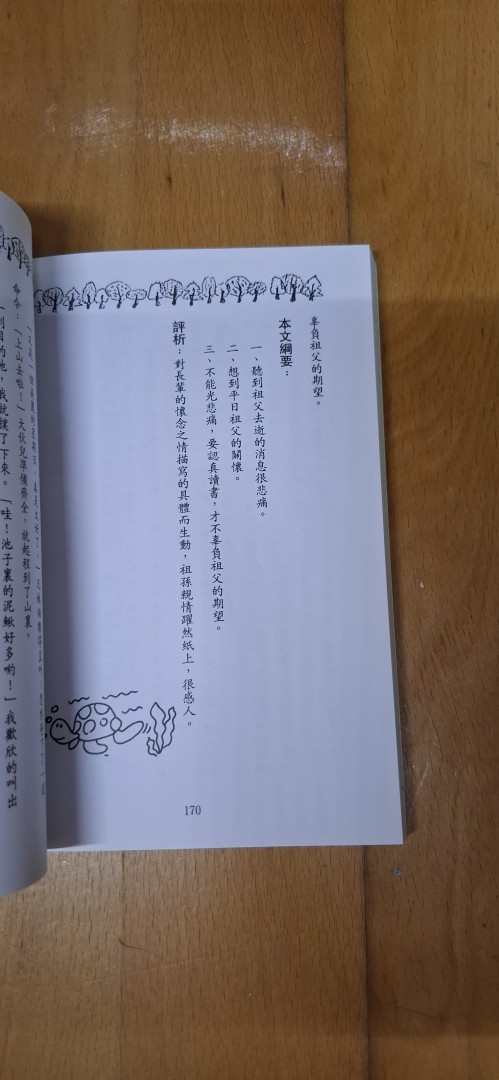 辜負祖父的期望。
本文綱要：
一、聽到祖父去逝的消息很悲痛。
二、想到平日祖父的關懷。
三、不能光悲痛，要認真讀書，才不辜負祖父的期望。
評析：對長輩的懷念之情描寫的具體而生動，祖孫親情躍然紙上，很感人。
170
命令：「上山去啦！」大伙兒準備齊全，就起程到了山裏。
到目的地，我就撲了下來。「哇！池子裏的泥鰍好多喲！」我歡欣的叫出